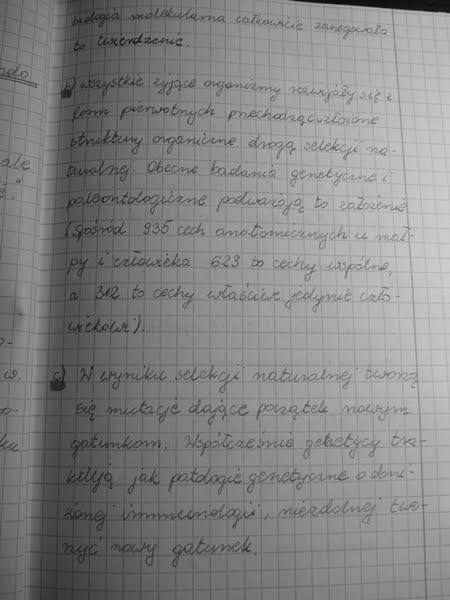 biologia molekularna całkowicie zanegowała
to twierdzenie.
b) wszystkie żyjące organizmy rozwijały się z
form pierwotnych przechodząc złożone
struktury organiczne drogą selekcji na-
turalnej. Obecne badania genetyczne i
paleontologiczne podważają to założenie
(spośród 935 cech anatomicznych u mał-
py i człowieka 623 to cechy wspólne,
a 312 to cechy właściwe jedynie czło-
wiekowi).
c) W wyniku selekcji naturalnej tworzą
się mutacje dające początek nowym
gatunkom. Współcześnie genetycy tra-
ktują jak patologie genetyczne o obni-
żonej immunologii, niezdolnej two-
rzyć nowy gatunek.